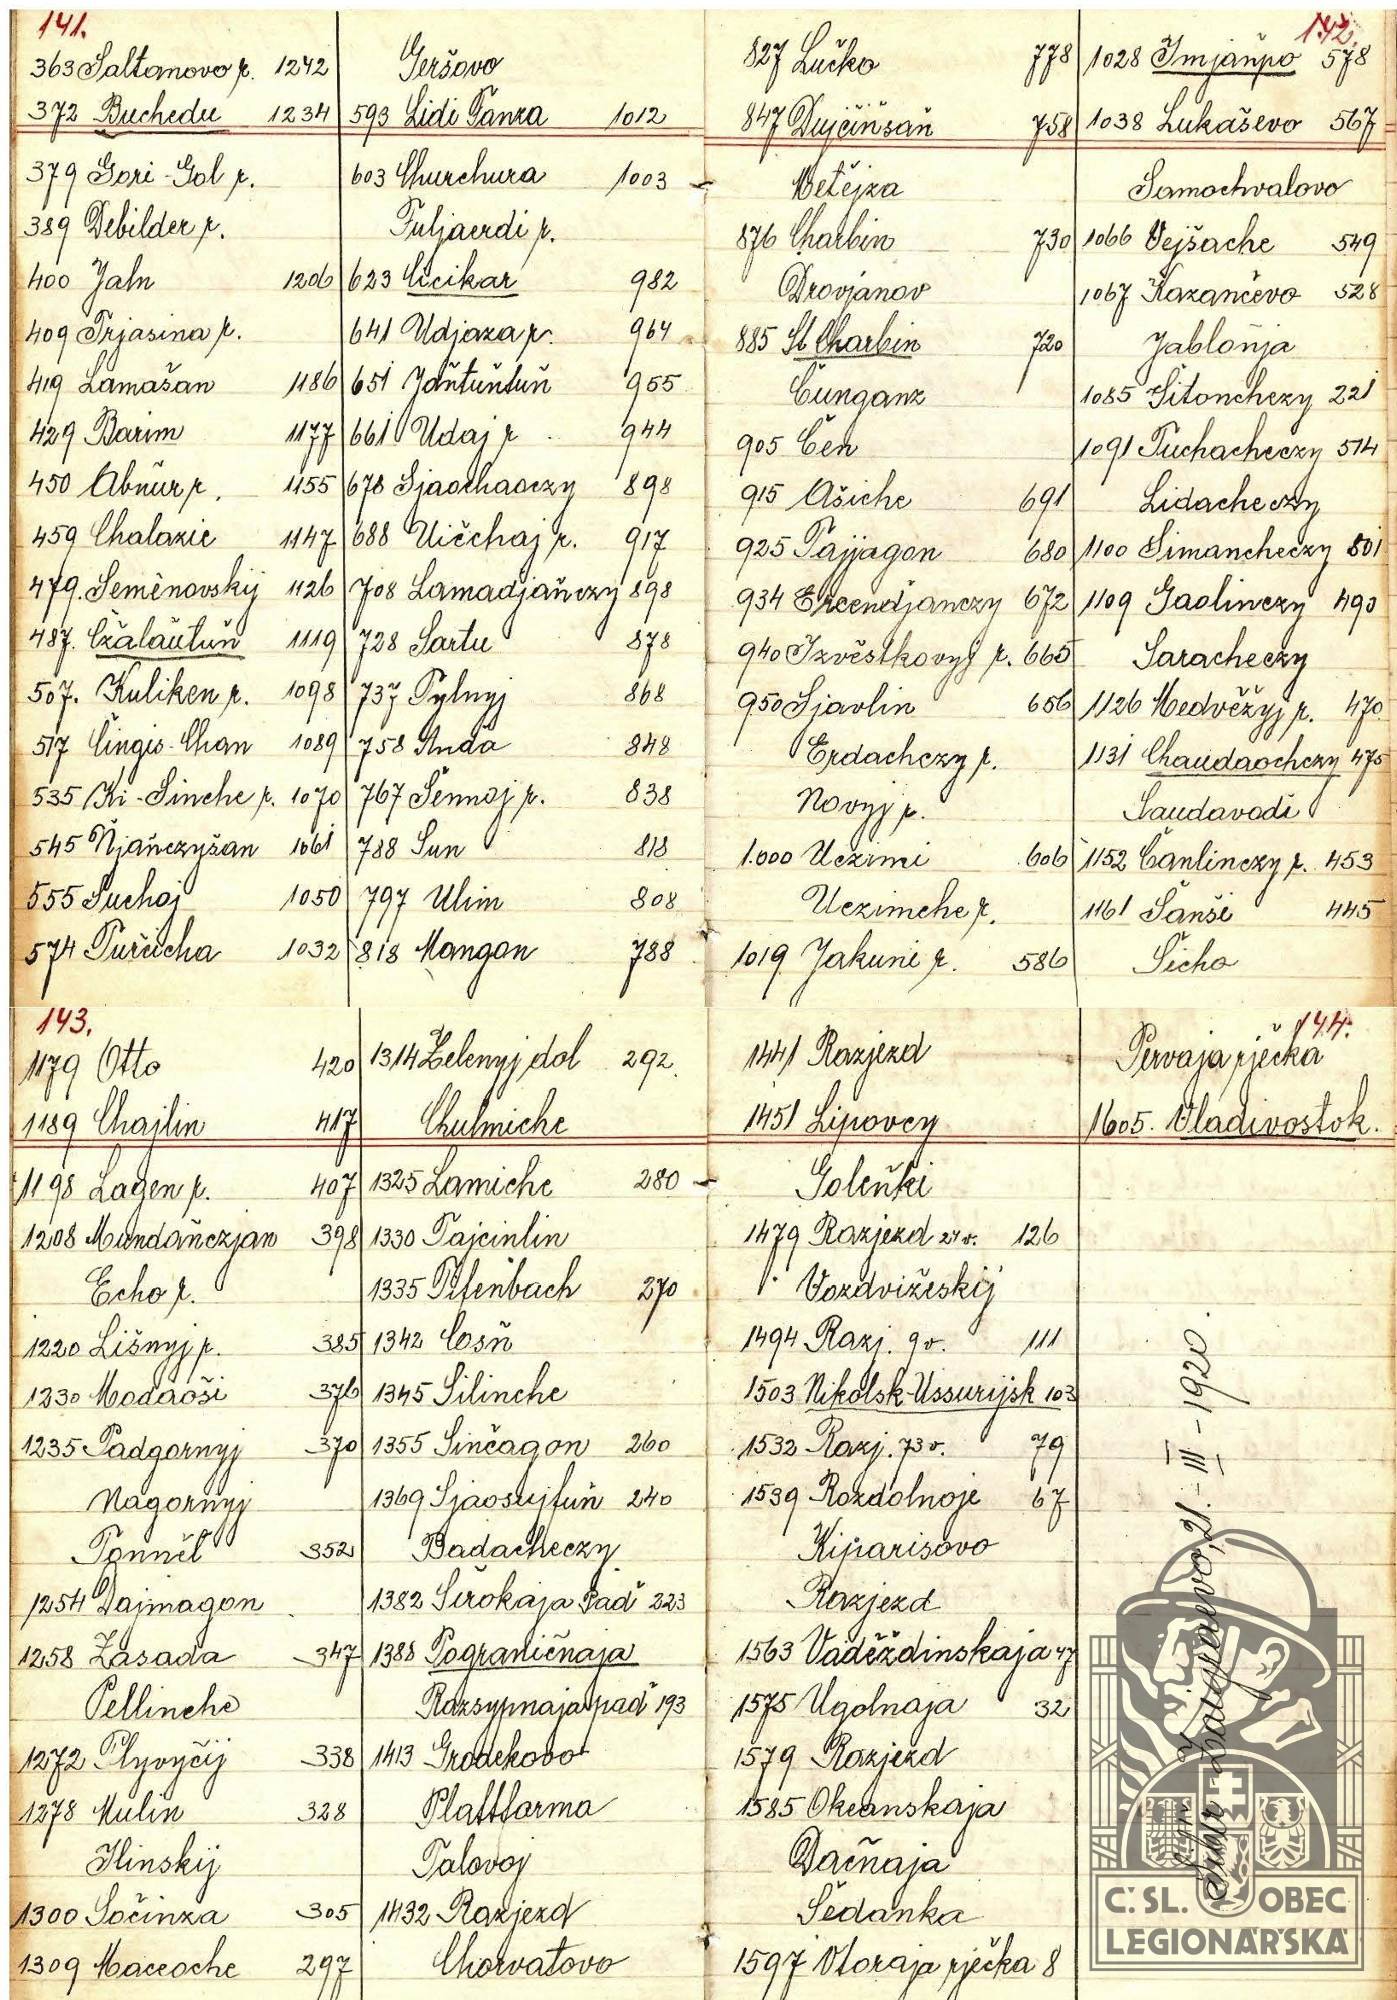 141.
363 Saltanovo r. 1242
372 Buchedu 1234
379 Gori-Gol r.
389 Debilder r.
400 Jaln 1206
409 Trjasina r.
419 Lamašan 1186
429 Barim 1177
450 Abňur r. 1155
459 Chalazie 1147
479. Seměnovskij 1126
487. Čžalaňtuň 1119
507. Kuliken r. 1098
517 Čingis-Chan 1089
535 Ki-Sinche r. 1070
545 Njaňczyšan 1061
555 Suchoj 1050
574 Turčicha 1032
Geršovo
593 Lidi Tanza 1012
603 Churchura 1003
Fuljaerdi r.
623 Cicikar 982
641 Udjaza r. 964
651 Jaňtuňtuň 955
661 Udaj r 944
678 Sjaochaoczy 898
688 Uičchaj r. 917
708 Lamadjaňczy 898
728 Sartu 878
737 Pylnyj 868
758 Anda 848
767 Sennoj r. 838
788 Sun 818
797 Ulim 808
818 Mangon 788
142.
827 Lučko 778
847 Dujčiňšaň 758
Metějza
876 Charbin 730
Drovjanov
885 St. Charbin 720
Čunganz
905 Čen
915 Ašiche 691
925 Tajjagon 680
934 Ercendjanczy 672
940 Izvěstkovyj r. 665
950 Sjavlin 656
Erdachczy r.
Novyj r.
1.000 Uczimi 606
Uczimche r.
1019 Jakuni r. 586
1028 Imjaňpo 578
1038 Lukaševo 567
Samochvalovo
1066 Vejšache 549
1067 Kazančevo 528
Jabloňja
1085 Šitonchezy 221
1091 Tuchacheczy 514
Lidacheczy
1100 Simancheczy 501
1109 Gaolinczy 490
Saracheczy
1126 Medvěžyj r. 470
1131 Chaudaochczy 475
Saudavodi
1152 Čanlinczy r. 453
1161 Šanši 445
Šicho
143.
1179 Otto 420
1189 Chajlin 417
1198 Lagen r. 407
1208 Mundaňczjan 398
Echo r.
1220 Lišnyj r. 385
1230 Modaoši 376
1235 Padgornyj 370
Nagornyj
Tonněl 352
1254 Dajmagon
1258 Zasada 347
Pellinche
1272 Plyvyčij 338
1278 Mulin 328
Ilinskij
1300 Sočinza 305
1309 Maceoche 297
1314 Zelenyj dol 292.
Chulmiche
1325 Lamiche 280
1330 Tajcinlin
1335 Pifenbach 270
1342 Cosň
1345 Silinche
1355 Sinčagon 260
1369 Sjaosujfuň 240
Badacheczy
1382 Širokaja Padˇ 223
1388 Pograničnaja
Razsypnaja padˇ 193
1413 Grodekovo
Plattforma
Talovoj
1432 Razjezd
Chorvatovo
144.
1441 Razjezd
1451 Lipovcy
Goleňki
1479 Razjezd 24 v. 126
Vozdvižeskij
1494 Razj. 9 v. 111
1503 Nikolsk-Ussurijsk 103
1532 Razj. 73 v. 79
1539 Rozdolnoje 67
Kiparisovo
Razjezd
1563 Vaděždinskaja 47
1575 Ugolnaja 32
1579 Razjezd
1585 Okeanskaja
Dačnaja
Sedanka
1597 Vtoraja rječka 8
Pervaja rječka
1605. Vladivostok.
Zaigraevo, 21.-III-1920.
Č. SL. OBEC
LEGIONÁŘSKÁ